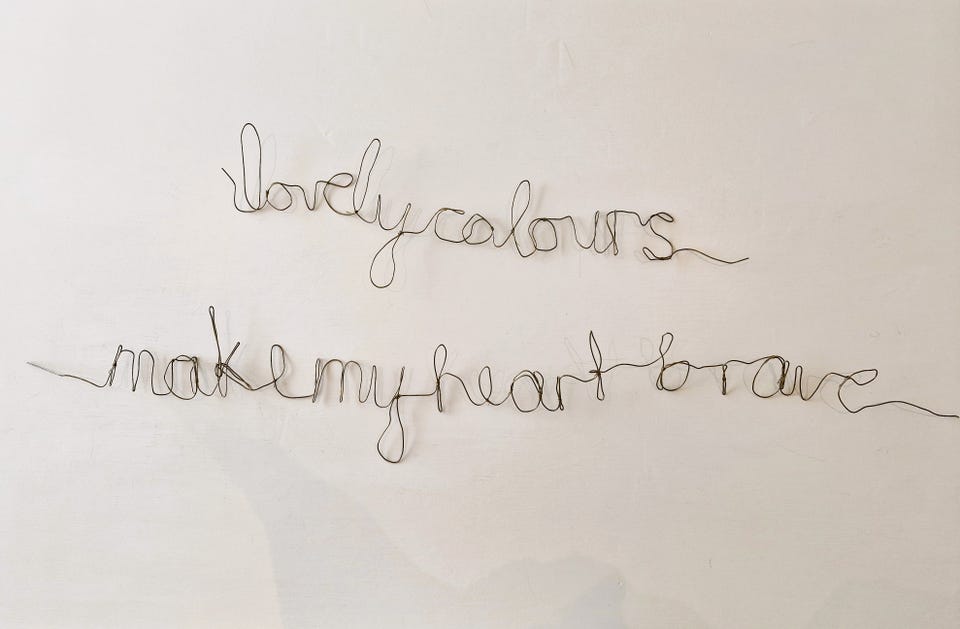 lovely colours
make my heart brave